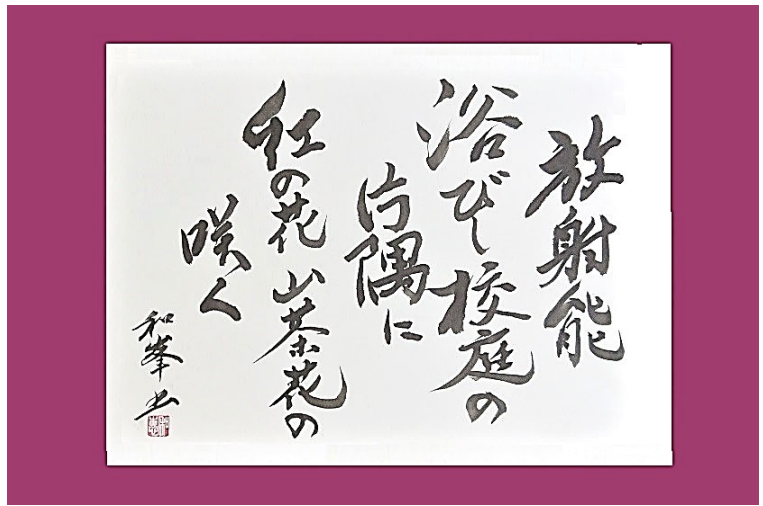 放射能
浴びし校庭の
片隅に
紅の花山茶花の
咲く
和峯書